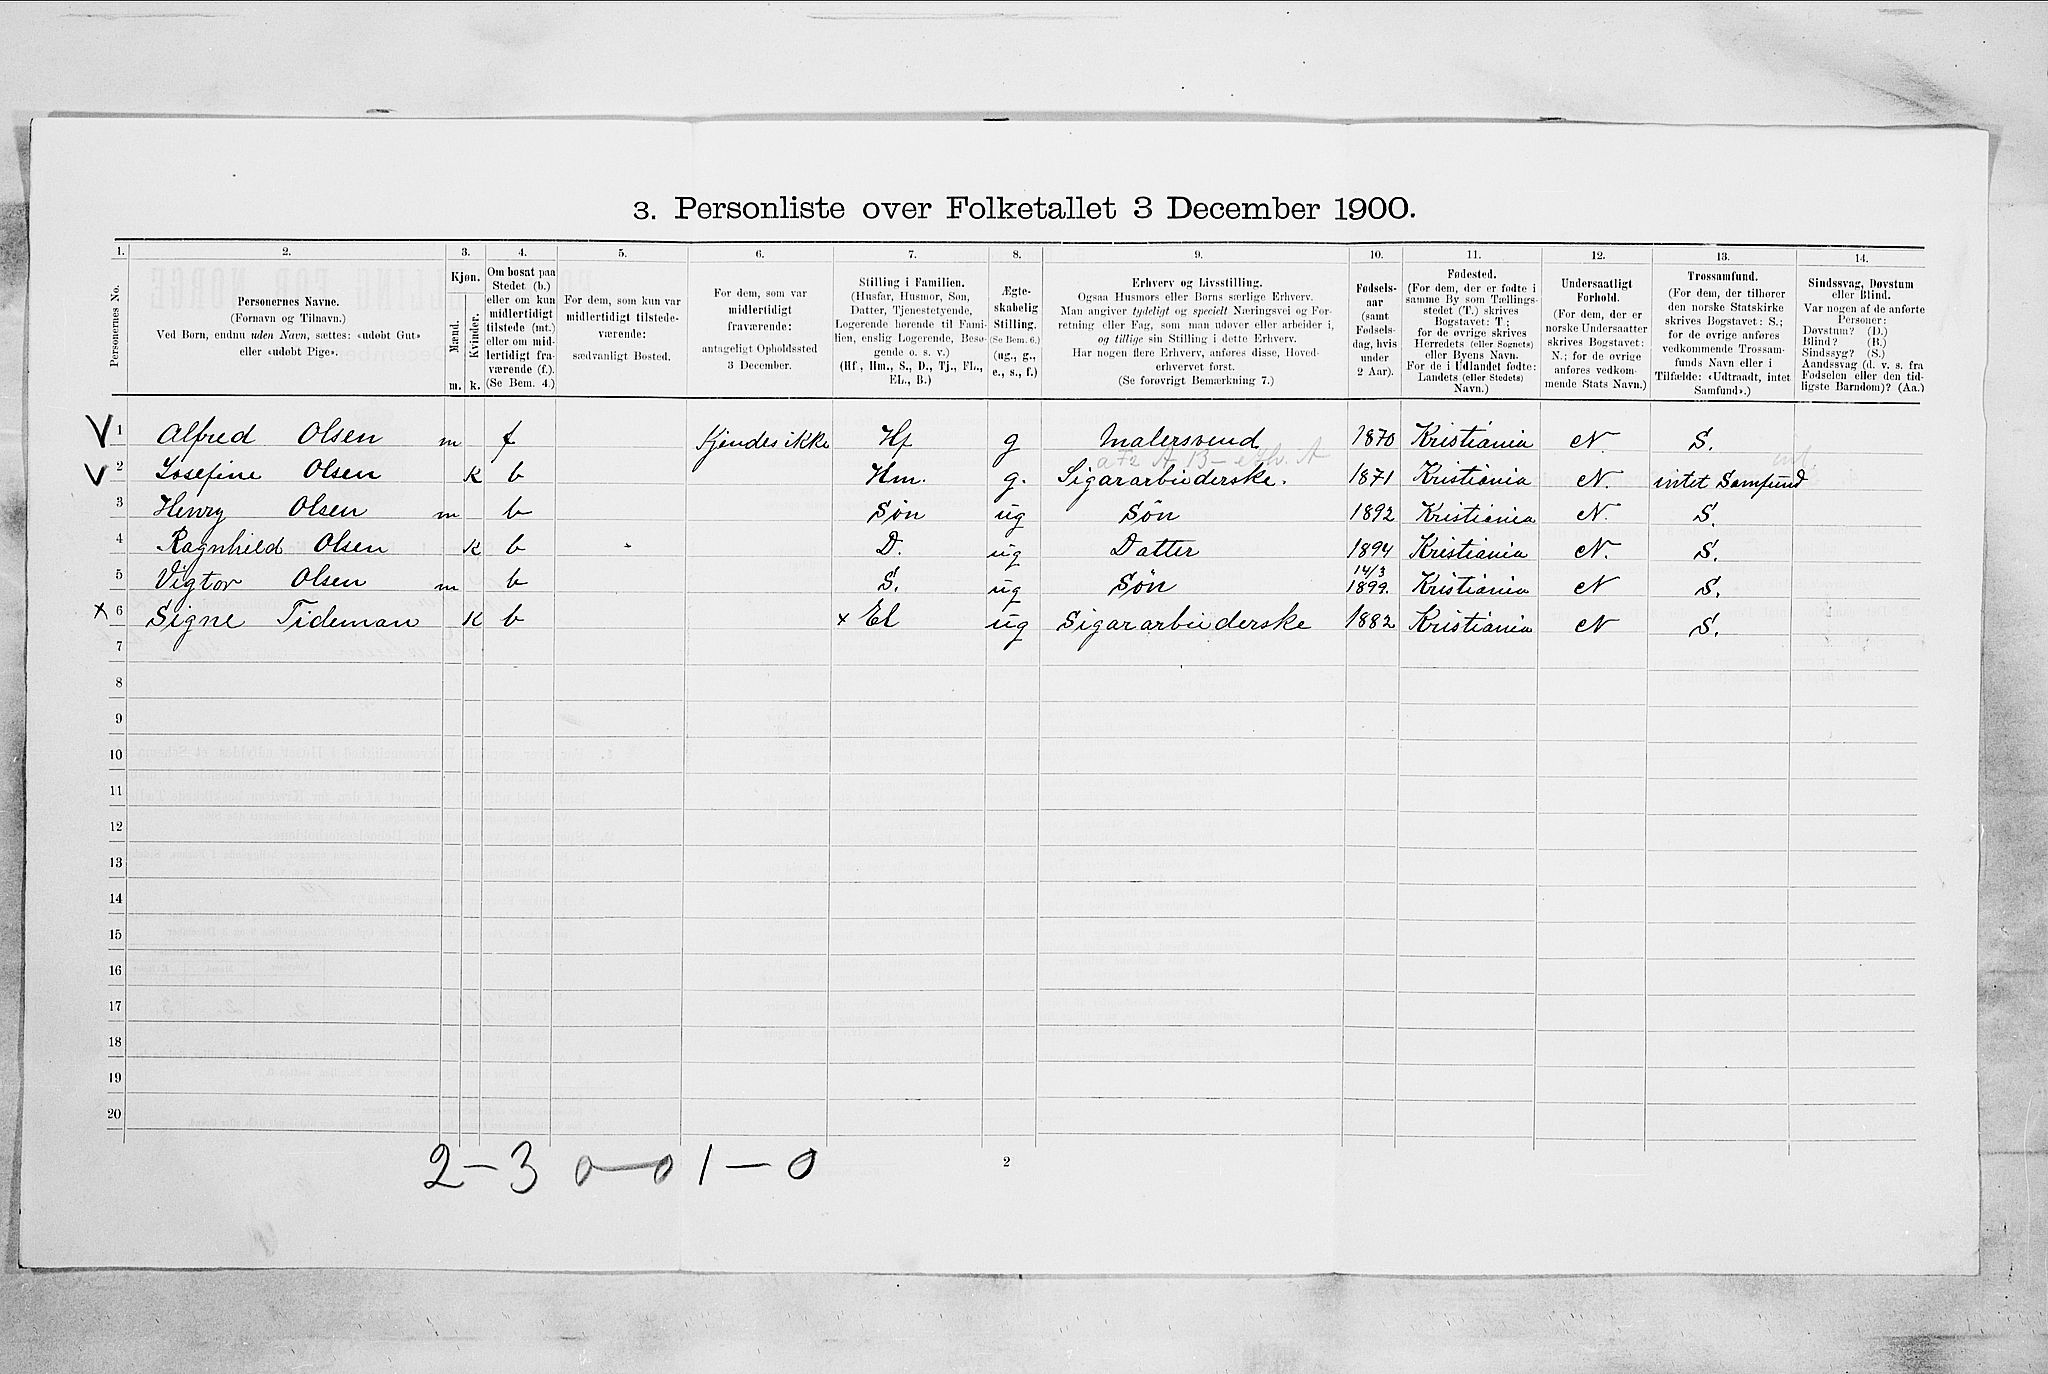 3. Personliste over Folketallet 3 December 1900.
1. 2. 3. 4. 5. 6. 7. 8. 9. 10. 11. 12. 13. 14.
Personernes No.
Personernes Navne.
(Fornavn og Tilnavn.)
Ved Børn, endnu uden Navn, sættes: «udøbt Gut»
eller «udøbt Pige».
Kjøn.
Mænd. Kvinder.
m. k.
Om bosat paa
Stedet (b.)
eller om kun
midlertidigt
tilstede (mt.)
eller om mid-
lertidigt fra-
værende (f.).
(Se Bem. 4.)
For dem, som kun var
midlertidigt tilstede-
værende:
sædvanligt Bosted.
For dem, som var
midlertidigt
fraværende:
antageligt Opholdssted
3 December.
Stilling i Familien.
(Husfar, Husmor, Søn,
Datter, Tjenestetyende,
Logerende hørende til Fami-
lien, enslig Logerende, Besø-
gende o. s. v.)
(Hf., Hm., S., D., Tj., FL.,
EL., B.)
Ægte-
skabelig
Stilling.
(Se Bem. 6.)
(ug., g.,
e., s., f.)
Erhverv og Livsstilling.
Ogsaa Husmors eller Børns særlige Erhverv.
Man angiver tydeligt og specielt Næringsvei og For-
retning eller Fag, som man udøver eller arbeider i,
og tillige sin Stilling i dette Erhverv.
Har nogen flere Erhverv, anføres disse, Hoved-
erhvervet først.
(Se forøvrigt Bemærkning 7.)
Fødsels-
aar
(samt
Fødsels-
dag, hvis
under
2 Aar).
Fødested.
(For dem, der er fødte i
samme By som Tællings-
stedet (T.) skrives
Bogstavet: T;
for de øvrige skrives
Herredets (eller Sognets)
eller Byens Navn.
For de i Udlandet fødte:
Landets (eller Stedets)
Navn.)
Undersaatligt
Forhold.
(For dem, der er
norske Undersaatter
skrives Bogstavet:
N.; for de øvrige
anføres vedkom-
mende Stats Navn.)
Trossamfund.
(For dem, der tilhører
den norske Statskirke
skrives Bogstavet: S.;
for de øvrige anføres
vedkommende Trossam-
funds Navn eller i
Tilfælde: «Udtraadt, intet
Samfund».)
Sindssvag, Døvstum
eller Blind.
Var nogen af de anførte
Personer:
Døvstum? (D.)
Blind? (B.)
Sindssyg? (S.)
Aandssvag (d. v. s. fra
Fødselen eller den tid-
ligste Barndom)? (Aa.)
V 1 Alfred Olsen m f Kjendes ikke Hf g Malersvend 1870 Kristiania N. S.
V 2 Josefine Olsen K b Hm. g. Sigararbeiderske. 1871 Kristiania N. intet Samfund
3 Henry Olsen m b Søn ug Søn 1892 Kristiania N. S.
4 Ragnhild Olsen K b D. ug Datter 1894 Kristiania N. S.
5 Vigtor Olsen m b S. ug Søn 14/3 1899. Kristiania N S.
x 6 Signe Tideman K b x El ug Sigararbeiderske 1882 Kristiania N S.
7
8
9
10
11
12
13
14
15
16
17
18
19
20
2-3 0-0 1-0
2